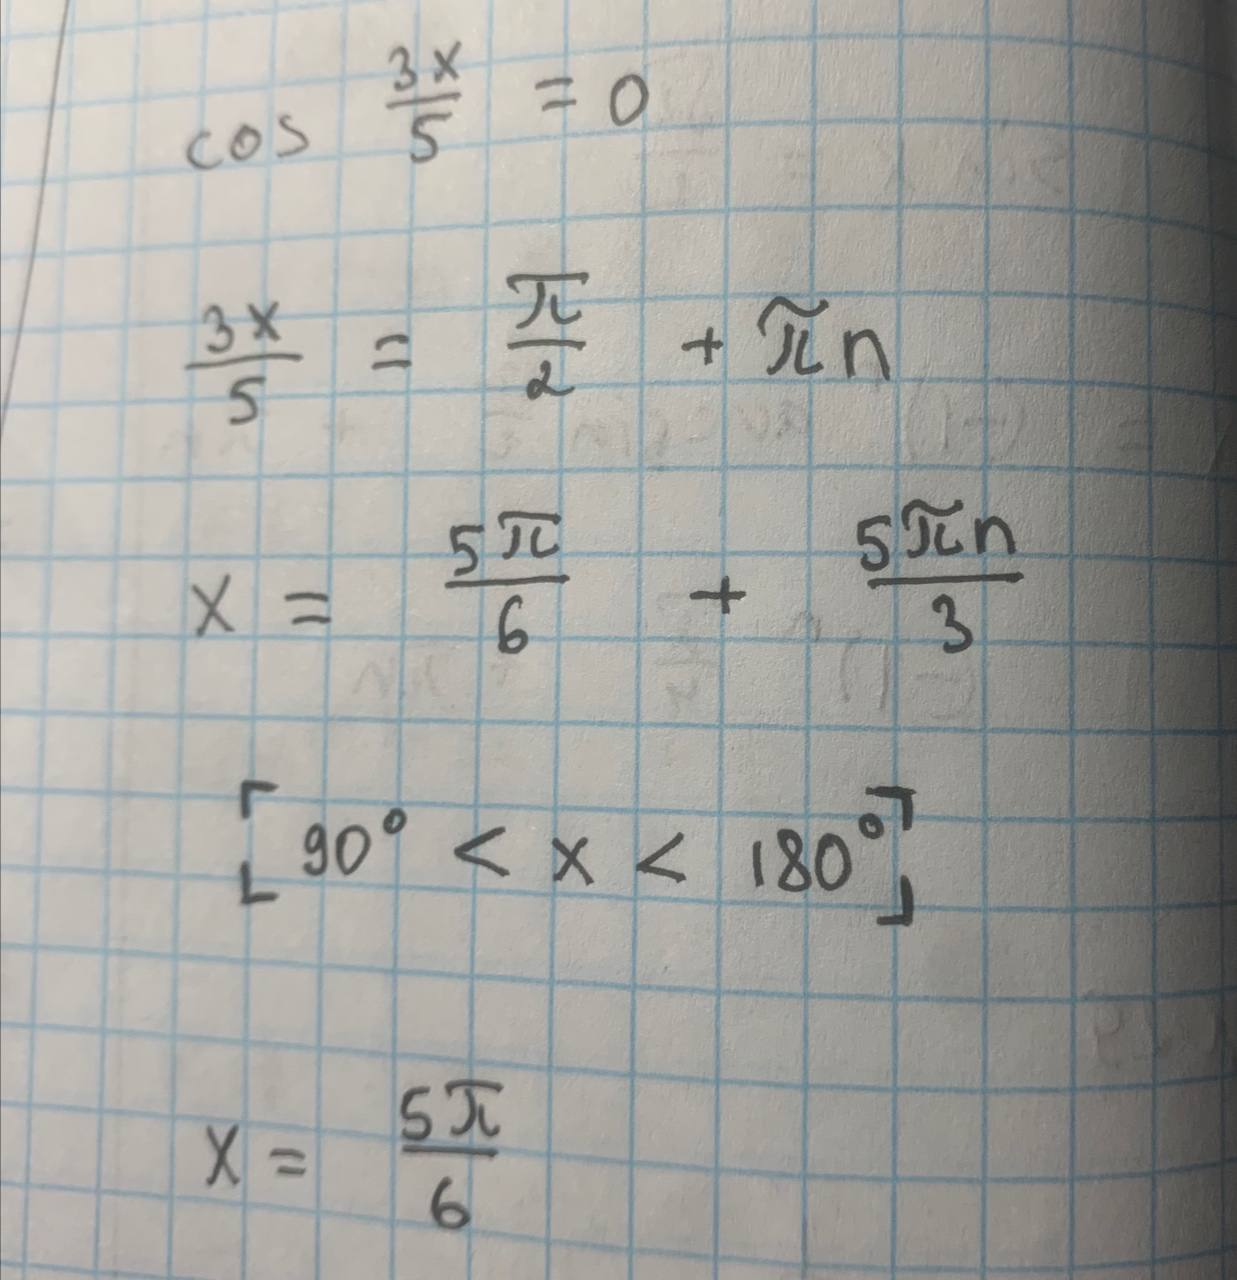 cos 3x/5 = 0
3x/5 = π/2 + πn
x = 5π/6 + 5πn/3
[90° < x < 180°]
x = 5π/6